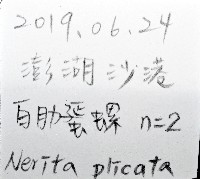 2019.06.24
澎湖沙港
百肋蜑螺 n=2
Nerita plicata